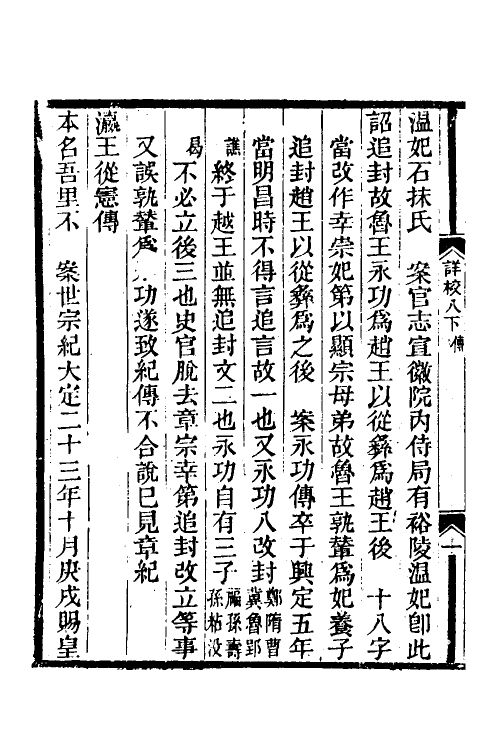 詳校八下 傳
一
温妃石抹氏 案官志宣徽院内侍局有裕陵温妃卽此
詔追封故魯王永功爲趙王以從彝爲趙王後 十八字
當改作幸崇妃第以顯宗母弟故魯王孰輦爲妃養子
追封趙王以從彝爲之後 案永功傳卒于興定五年
當明昌時不得言追言故一也又永功八改封鄭隋曹
冀魯郢
譙 終于越王並無追封文二也永功自有三子福孫壽
孫粘没
曷 不必立後三也史官脫去章宗幸第追封改立等事
又誤孰輦爲 功遂致紀傳不合說已見章紀
瀛王從憲傳
本名吾里不 案世宗紀大定二十三年十月庚戌賜皇